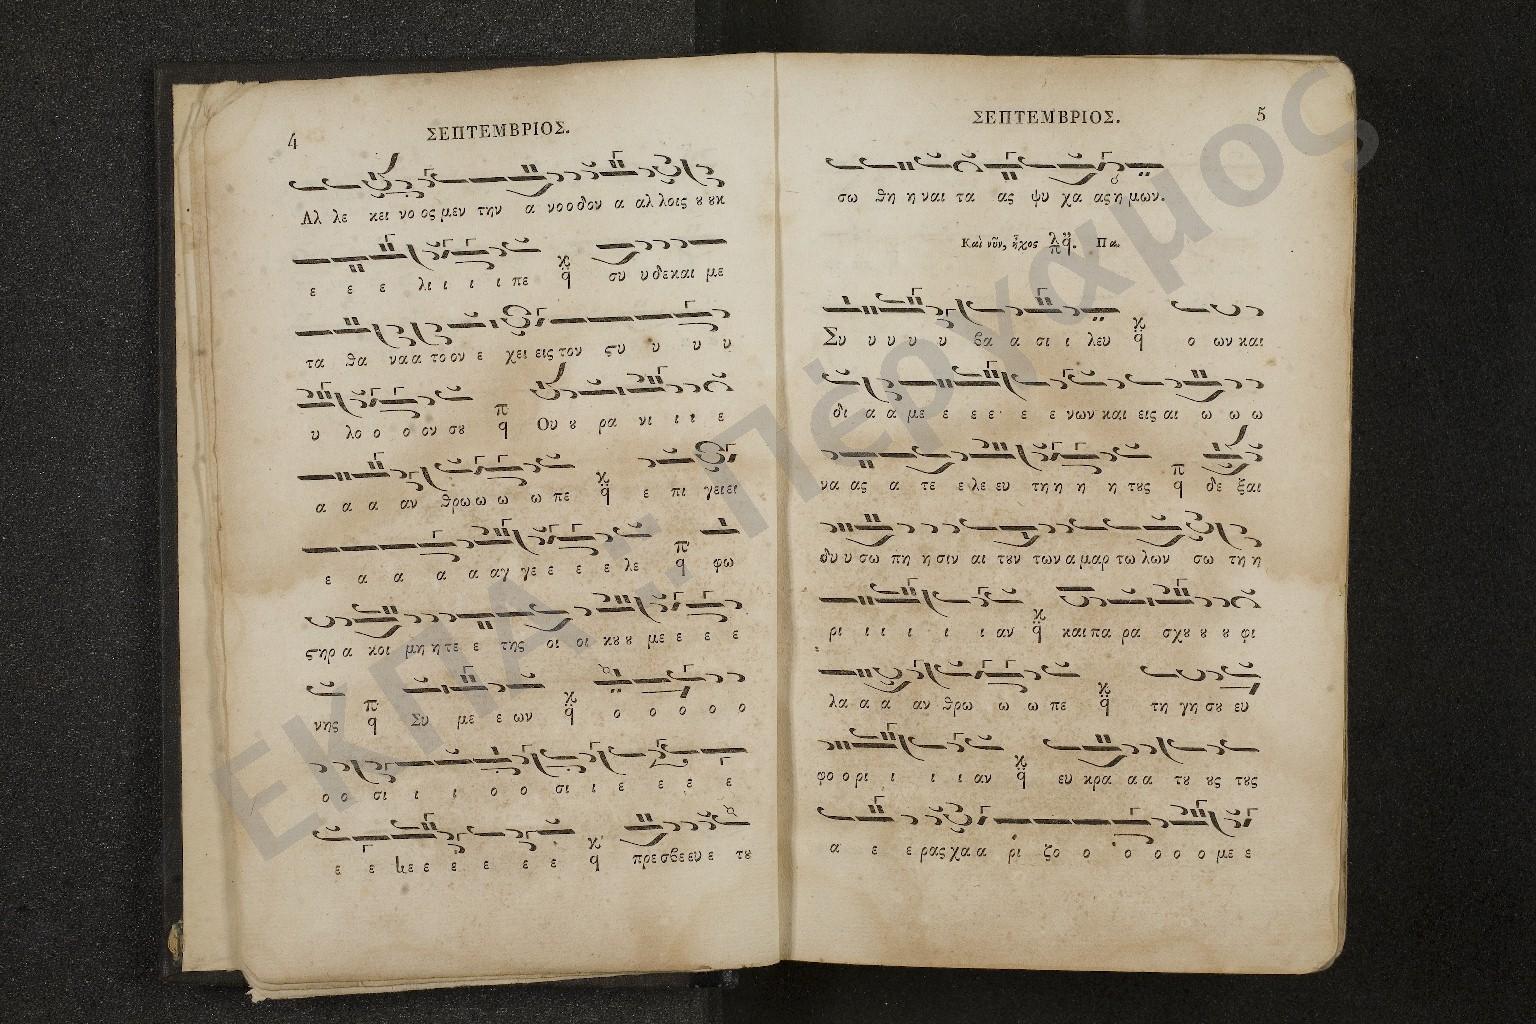 4
ΣΕΠΤΕΜΒΡΙΟΣ.
Αλ λε κει νο ος μεν την α νο ο δον α αλ λοις ȣ ȣκ
ε ε ε λι ι ι ι πε συ υ δε και με
τα θα να α το ον ε χει εις τον ϛυ υ υ υ
υ λο ο ο ον σȣ Ου ȣ ρα νι ι ι ε
α α α αν θρω ω ω ω πε ε πι γει ει
ε α α α α αγ γε ε ε ε λε φω
ϛηρ α κοι μη η τε ε της οι οι κȣ ȣ με ε ε ε
νης Συ με ε ων ο ο ο ο ο
ο ο σι ι ι ο ο σι ι ε ε ε ε
ε ε ε ε ε ε ε ε πρεσβευ ε τȣ
ΣΕΠΤΕΜΒΡΙΟΣ.
5
σω θη η ναι τα ας ψυ χα ας η μων.
Καὶ νῦν, ἦχος λ π q̈. Πα.
Συ υ υ υ υ βα α σι ι λευ ο ων και
δι α α με ε ε ε ε ε νων και εις αι ω ω ω
να ας α τε ε λε ευ τη η η η τȣς δε ξαι
δυ υ σω πη η σιν αι τȣν των α μαρ τω λων σω τη η
ρι ι ι ι ι ι αν και πα ρα σχȣ ȣ ȣ φι
λα α α αν θρω ω ω πε τη γη σȣ ευ
φο ο ρι ι ι ι αν ευ κρα α α τȣ ȣς τȣς
α ε ε ρας χα α ρι ζο ο ο ο ο ο με ε
ΕΚΠΑ - Πέργαμος